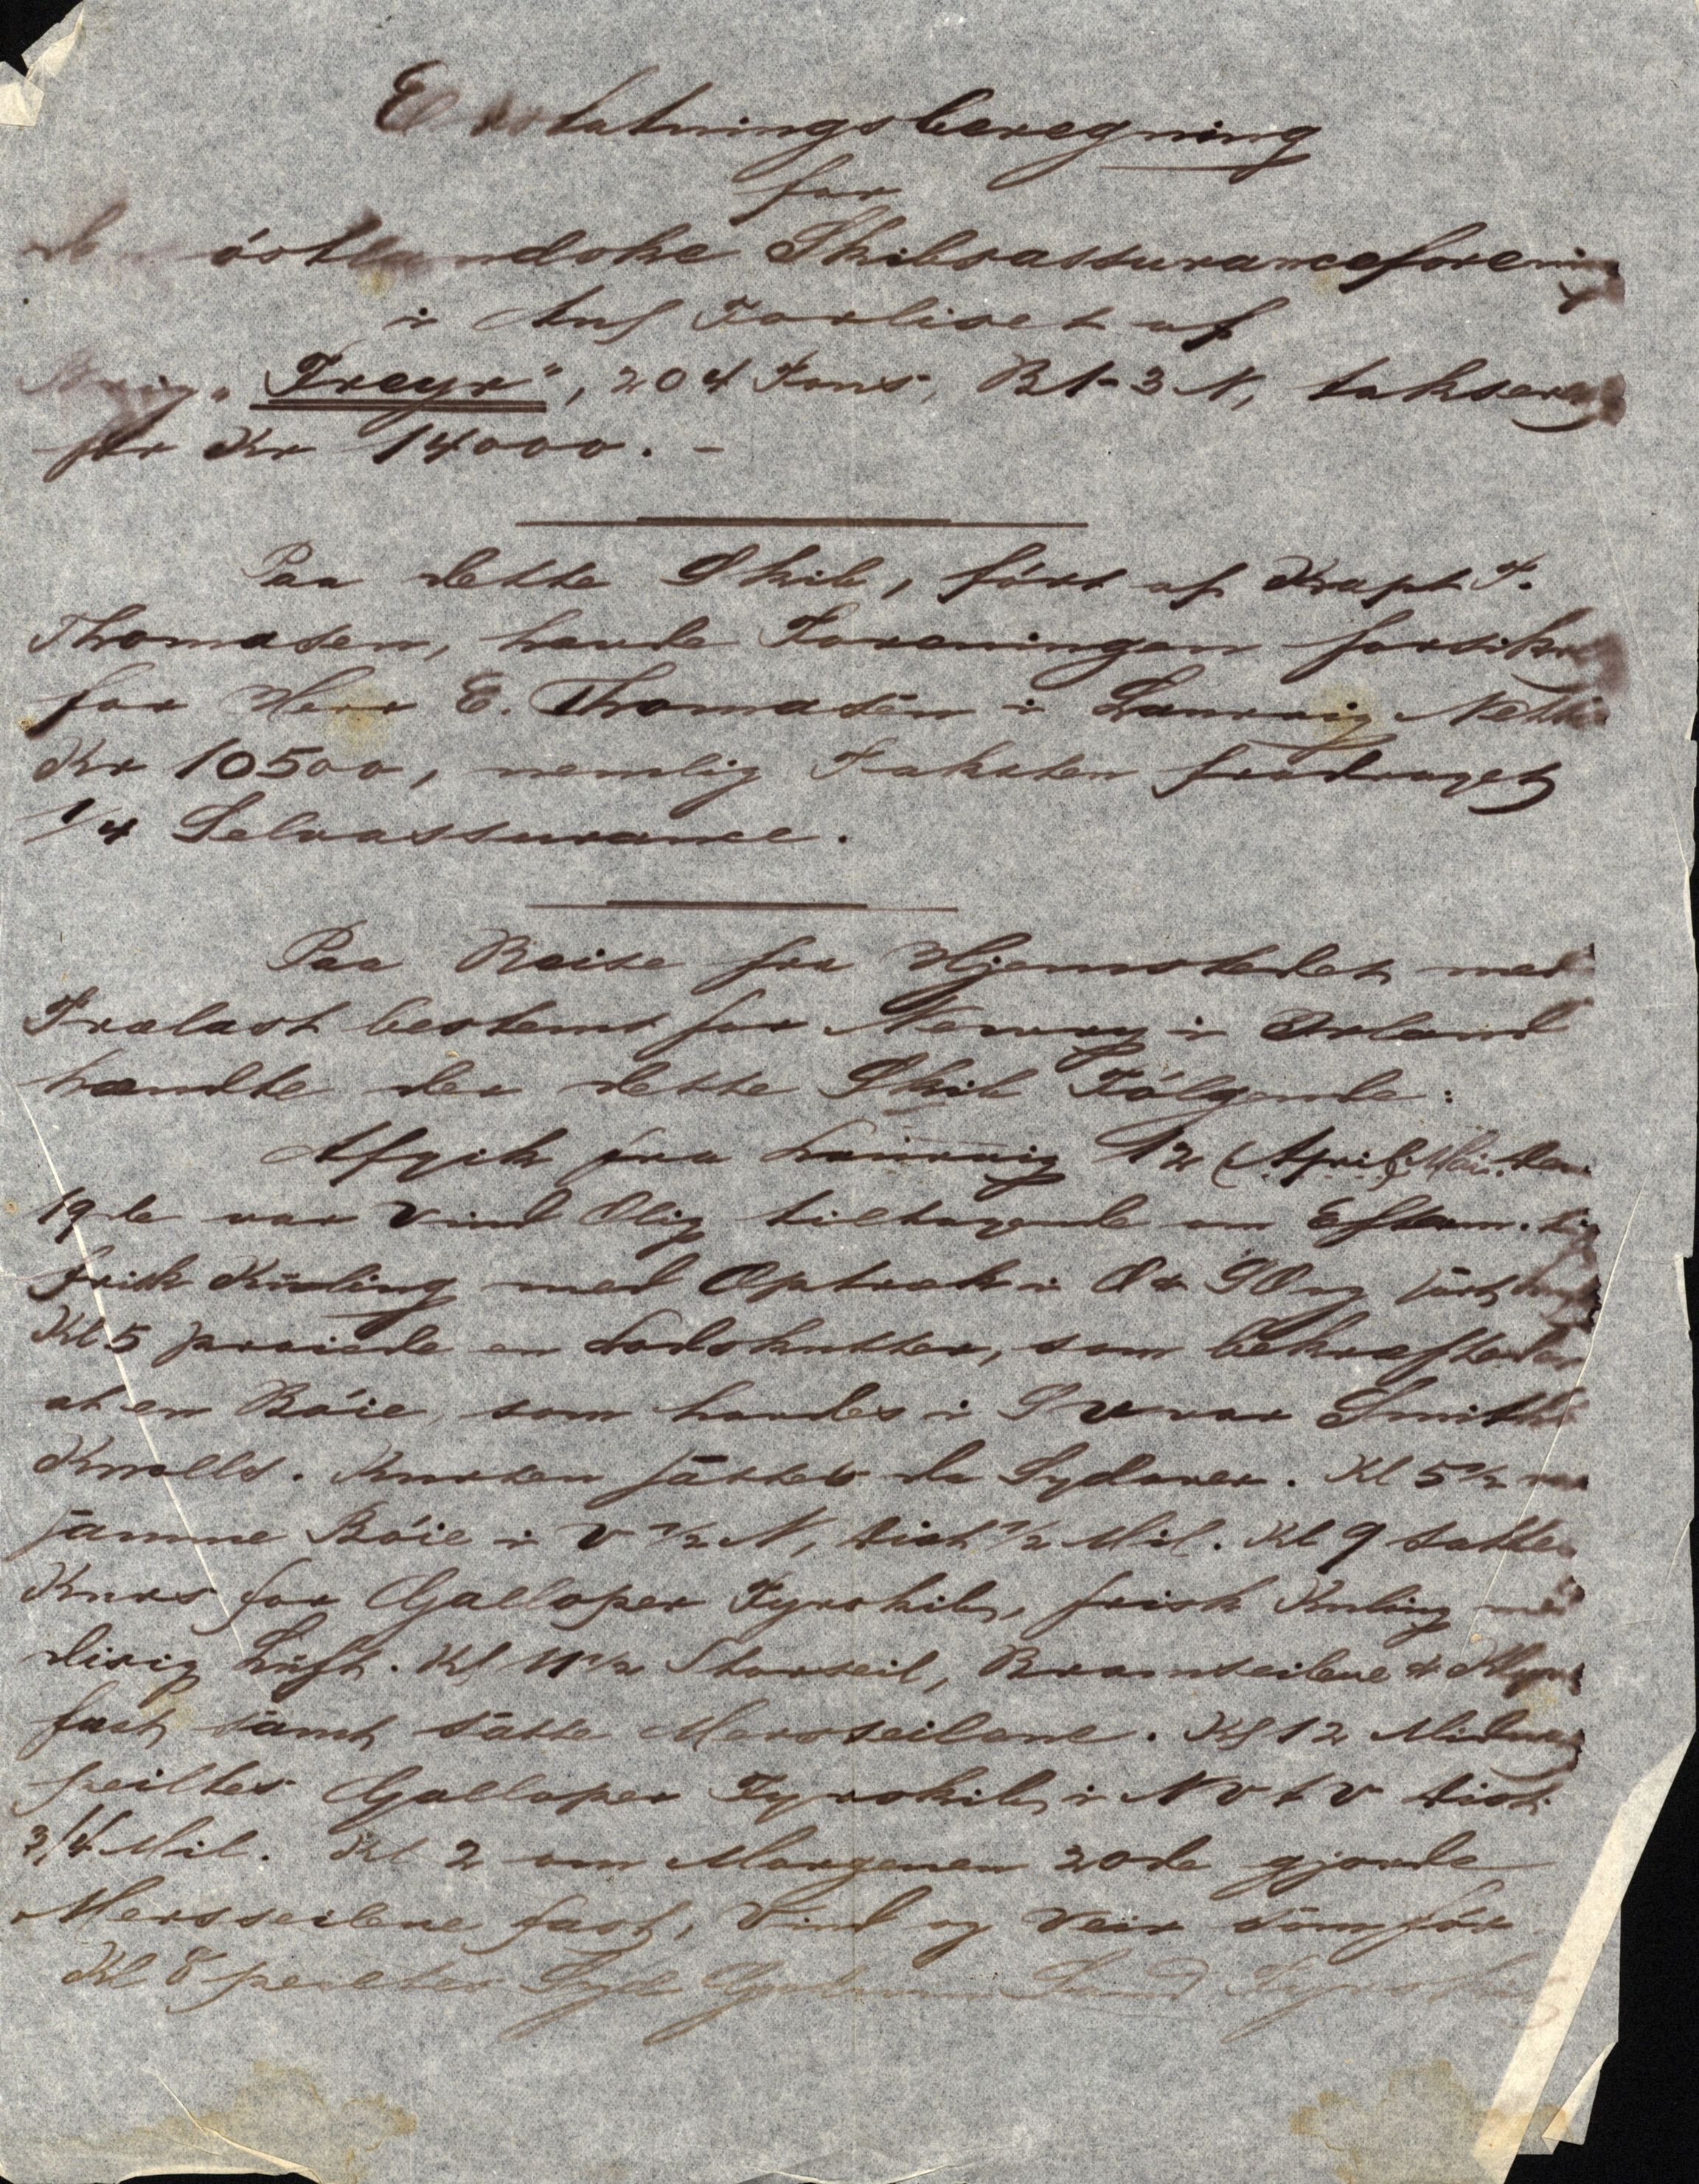 Erstatningsberegning
for
den östlandske Skibsassuranceforening
i Anl Forliset af
Brig „Freyr“, 204 Tons, B1-3 N, takseret
for Kr 14000. -
Paa dette Skib, fört af Kapt T.
Thomasen, havde Foreningen forsikret
for Herr E. Thomasen i Laurvig Netto
Kr 10500, nemlig Taksten fradraget
1/4 Selvassurance.
Paa Reise fra Hjemstedet med
Trælast bestemt for Newry i Irland
hændte der dette Skib Fölgende:
Afgik fra Laurvig 12 (April) Mai. Den
19de var Vind Olig tiltagende om Efterm. til
frisk Kuling med Optræk i O &
Kl 5 praiede en Lodskutter, som bekræftede
at en Böie, som havdes i S V var Smiths
Knolls. Kursen sattes da Sydover. Kl 5 1/2
samme Böie i V 1/2 N, dist 1/2 Mil. Kl 9 sattes
Kurs for Galloper Fyrskib, frisk Kuling med
disig Luft. Kl 11 1/2 Storseil, Bramseilene & Klyver
fast samt satte Mersseilene. Kl 12 Midnat
peiltes Galloper Fyrskib i N V t V dist
3/4 Mil. Kl 2 om Morgenen 20de gjorde
Mersseilene fast, Vind og Veir som för
Kl 8 peiltes Syd Sand Fyrskib